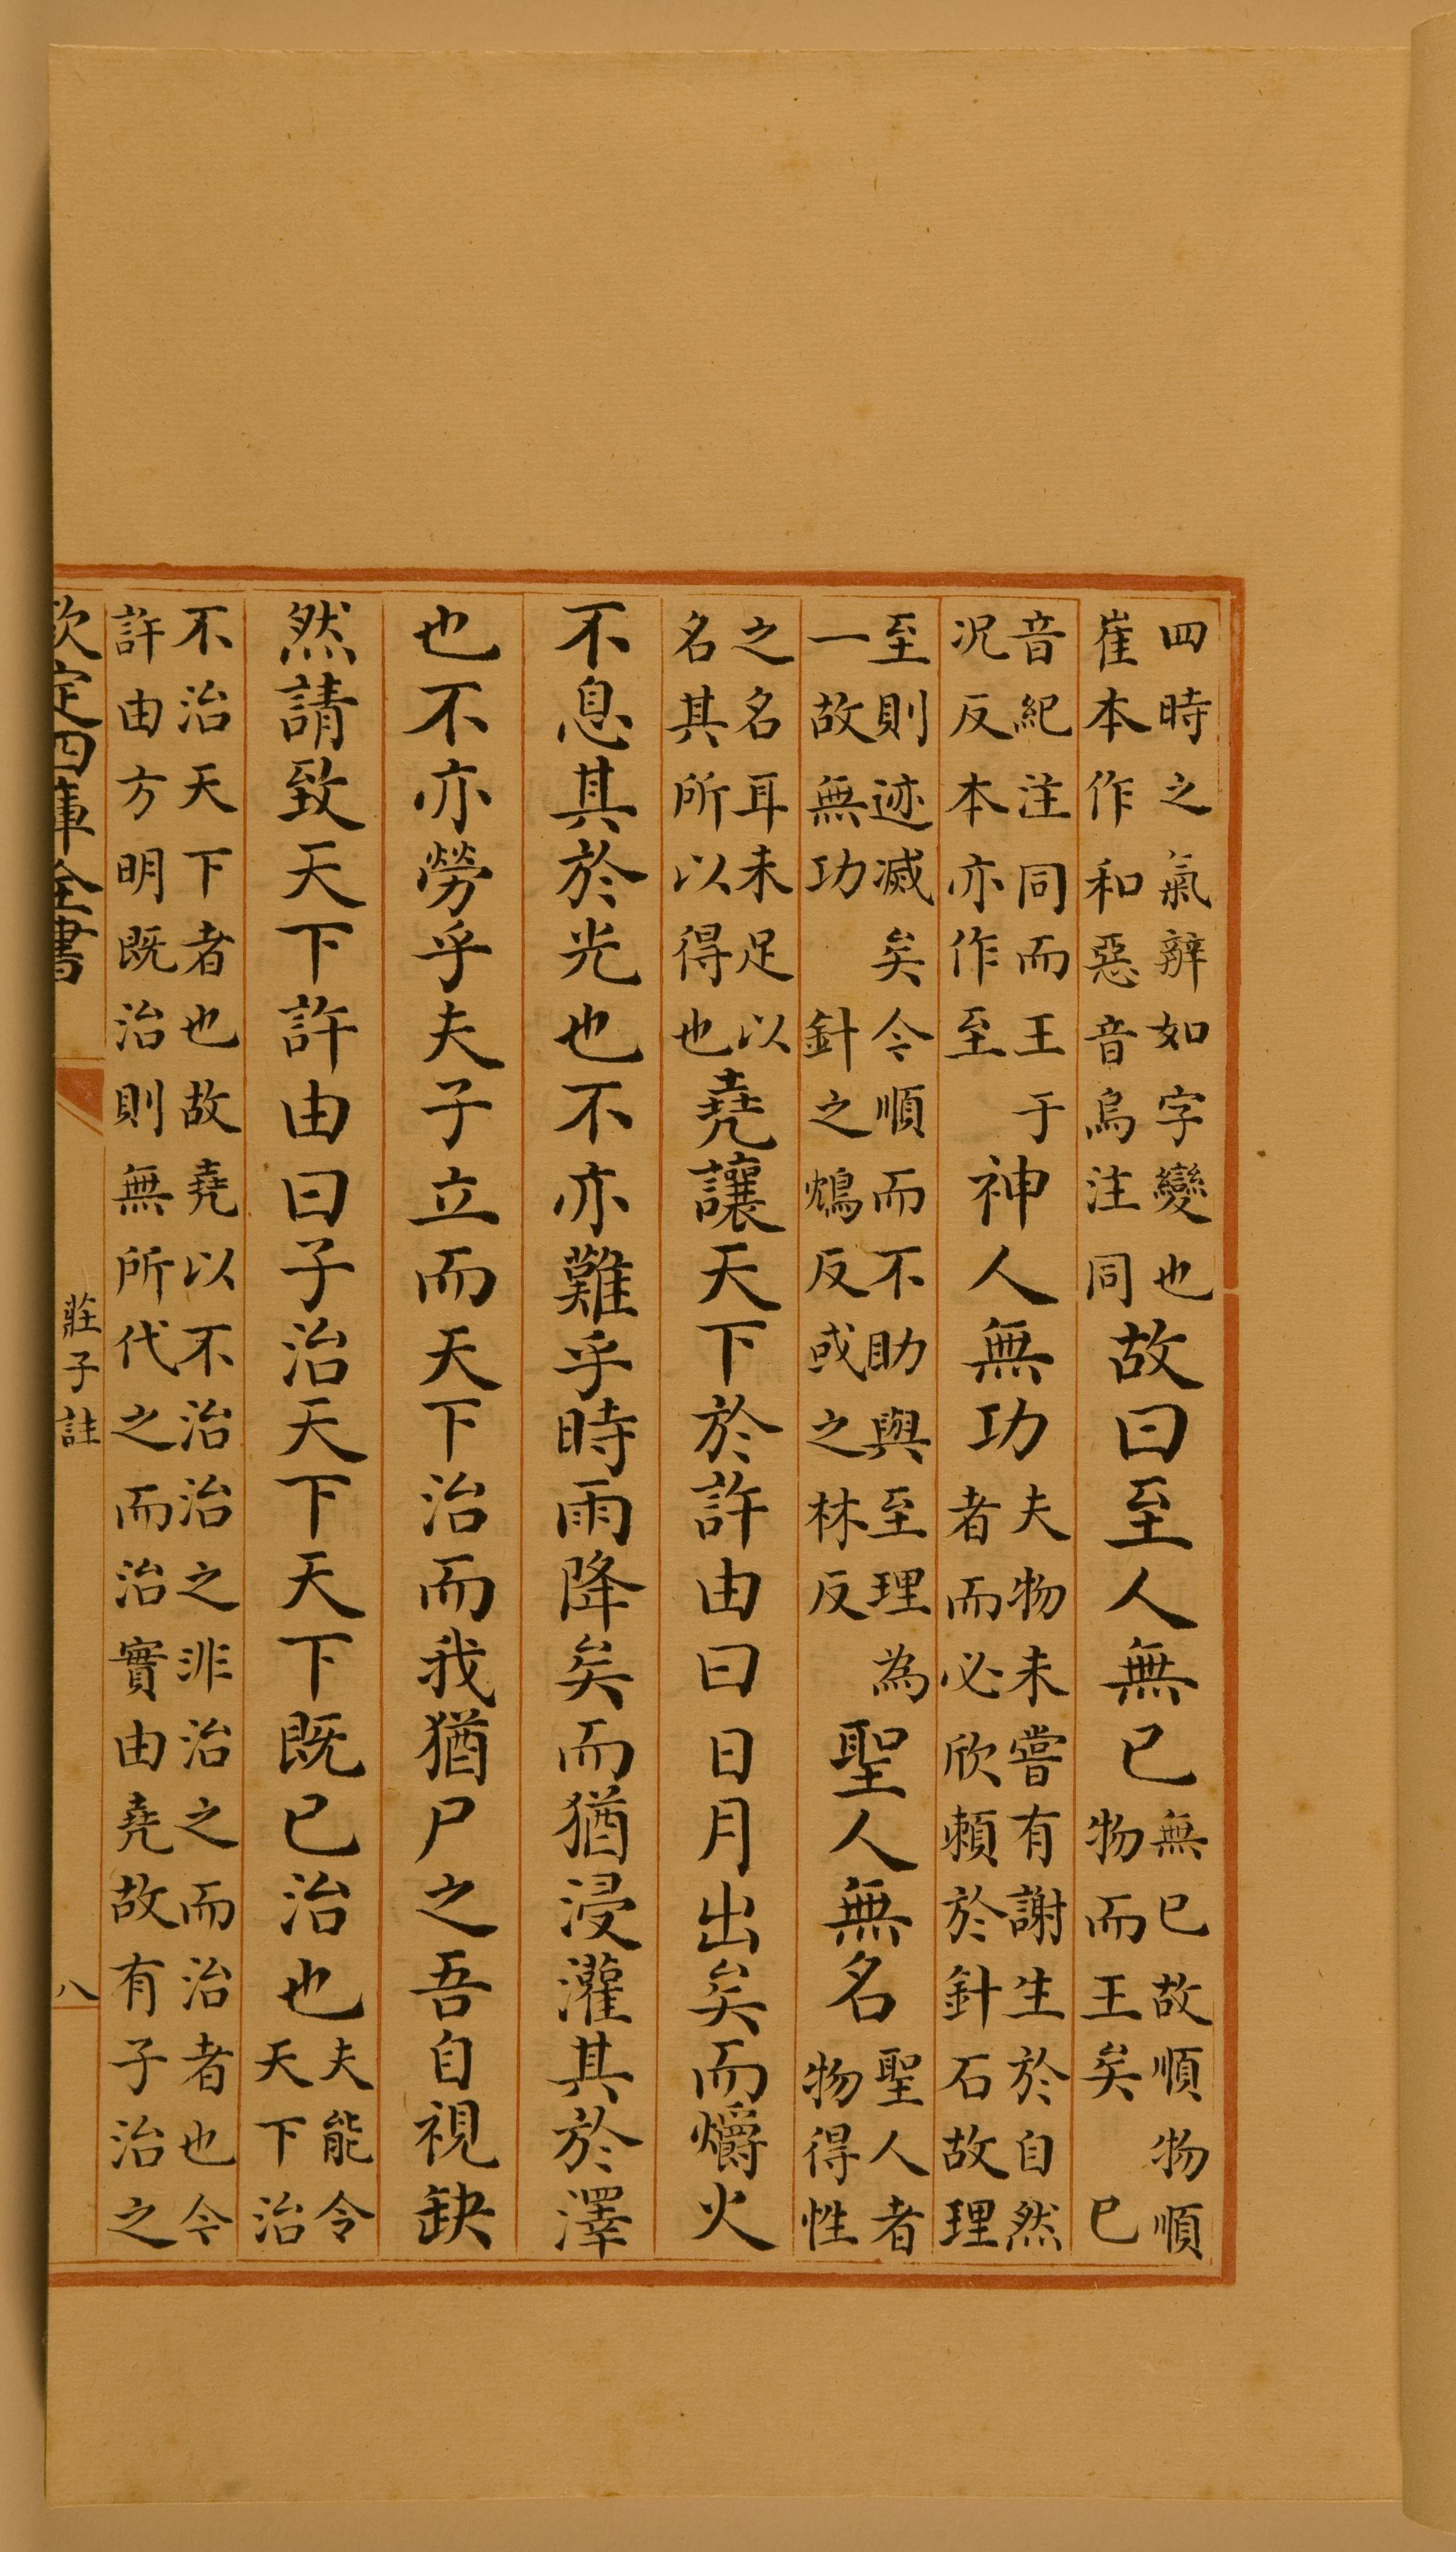 四時之氣辩如字變也
崔本作和惡音烏注同
故曰至人無已
無已故順物順
物而王矣　已
音紀注同而王于
况反本亦作至
神人無功
夫物未嘗有謝生於自然
者而必欣賴於針石故理
至則迹滅矣今順而不助與至理為
一故無功　針之鴆反或之林反
聖人無名
聖人者
物得性
之名耳未足以
名其所以得也
堯讓天下於許由曰日月出矣而爝火
不息其於光也不亦難乎時雨降矣而猶浸灌其於澤
也不亦勞乎夫子立而天下治而我猶尸之吾自視缺
然請致天下許由曰子治天下天下既已治也
夫能令
天下治
不治天下者也故堯以不治治之非治之而治者也今
許由方明既治則無所代之而治實由堯故有子治之
欽定四庫全書
莊子註
八